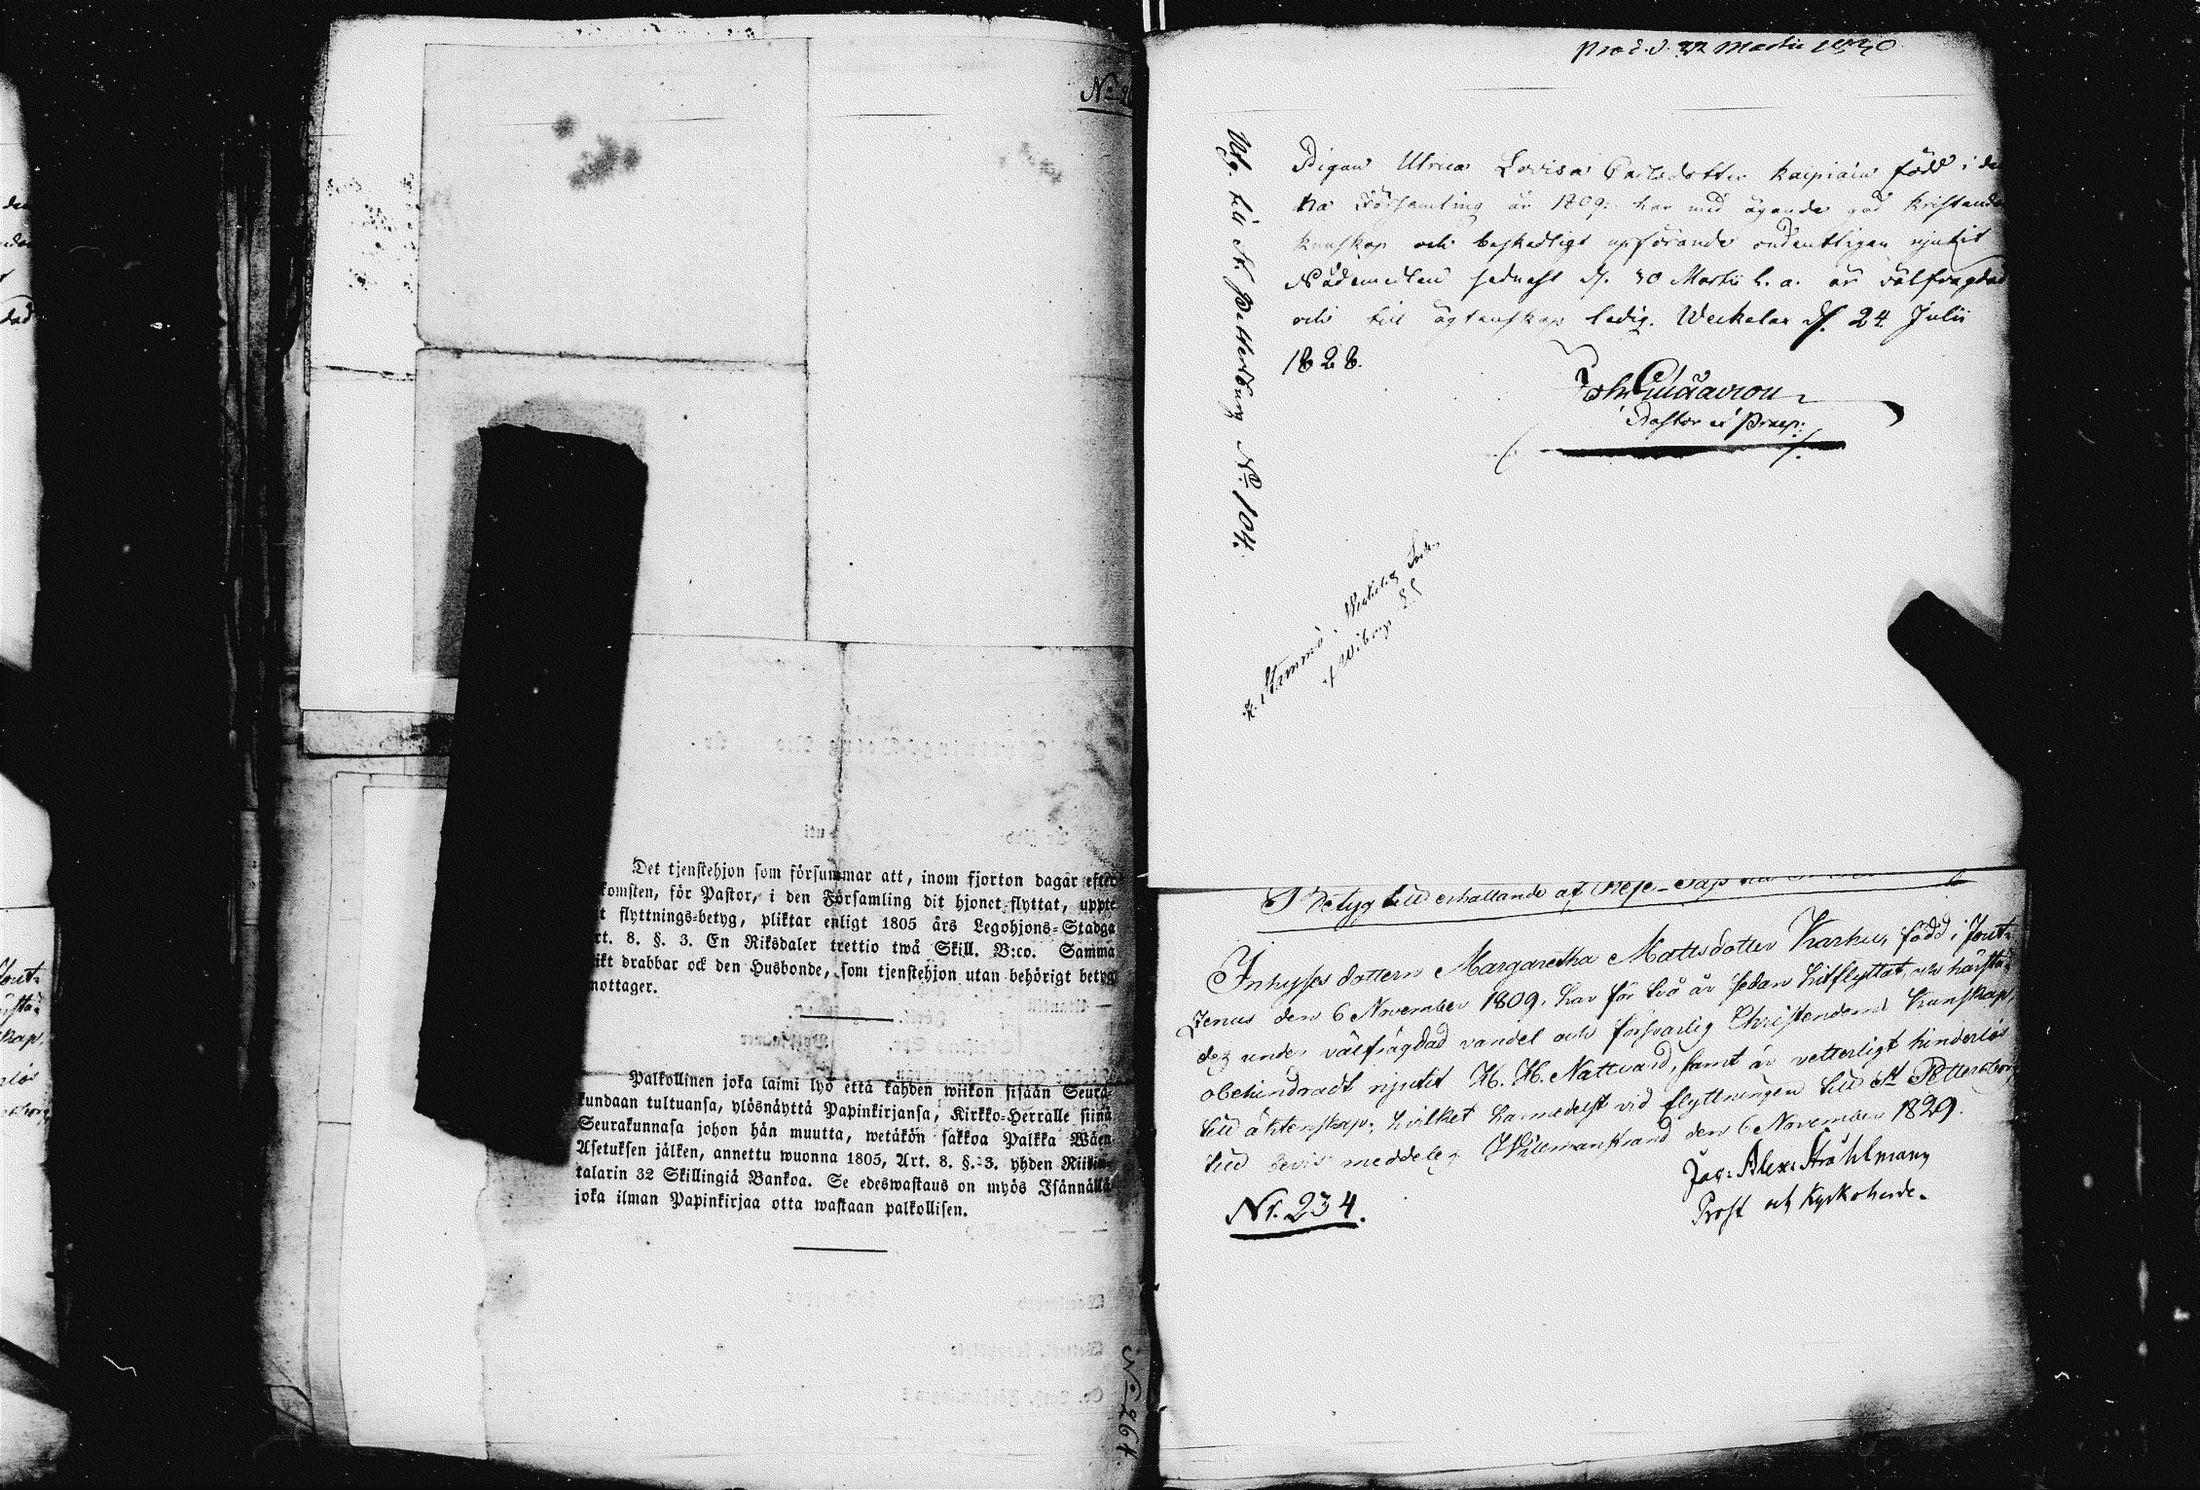 No
Det tjenstehjon som försummar att, inom fjorton dagar efter
komsten, för Pastor, i den Församling dit hjonet flyttat, uppte
t flyttnings-betyg, pliktar enligt 1805 års Legohjons-Stadga
rt. 8. §. 3. En Riksdaler trettio twå Skill. B:co. Samma
ikt drabbar ock den Husbonde, som tjenstehjon utan behörigt betyg
mottager.
Palkollinen joka laimi lyö että kahden wiikon sisään Seura-
kundaan tultuansa, ylösnäyttä Papinkirjansa, Kirkko-Herralle siinä
Seurakunnasa johon hän muutta, wetäkön sakkoa Palkka Wäen
Asetuksen jälken, annettu wuonna 1805, Art. 8. §. 3. yhden Riikin
talarin 32 Skillingiä Bankoa. Se edeswastaus on myös Isännällä
joka ilman Papinkirjaa otta wastaan palkollisen.
No 264.
Prod. d. 22 Martii
Pigan Ulrica Lovisa Carlsdotter Kaipiain född i den
na Församling år 1809. har med ägande god Kristendoms
kunskap och beskedligt upförande ordentligen njutit
Nådemedlen sednast d. 30 Martii h. a. är välfrägdad
och till ägtenskap ledig. Weckelax d. 24 Julii
1828.
Pastor et Præp:
Utfl. till St. Petterburg No 104.
Wiborg
Betyg till erhållande af
Inhyses dottern Margaretha Mattsdotter Karhu, född i Jout-
zenus den 6 November 1809, har för två år sedan hitflyttat, och härstä-
des under välfrägdad vandel och försvarlig Christendoms kunskap,
obehindradt njutit H. H. Nattvard, samt är vetterligt hinderlös
till äktenskap; hvilket härmedelst vid flyttningen till St Pettersborg
till bevis meddelas Wilmanstrand den 6 November 1829.
Jac: Alex: Stråhlmann
Prost och Kyrkoherde.
Nr. 234.